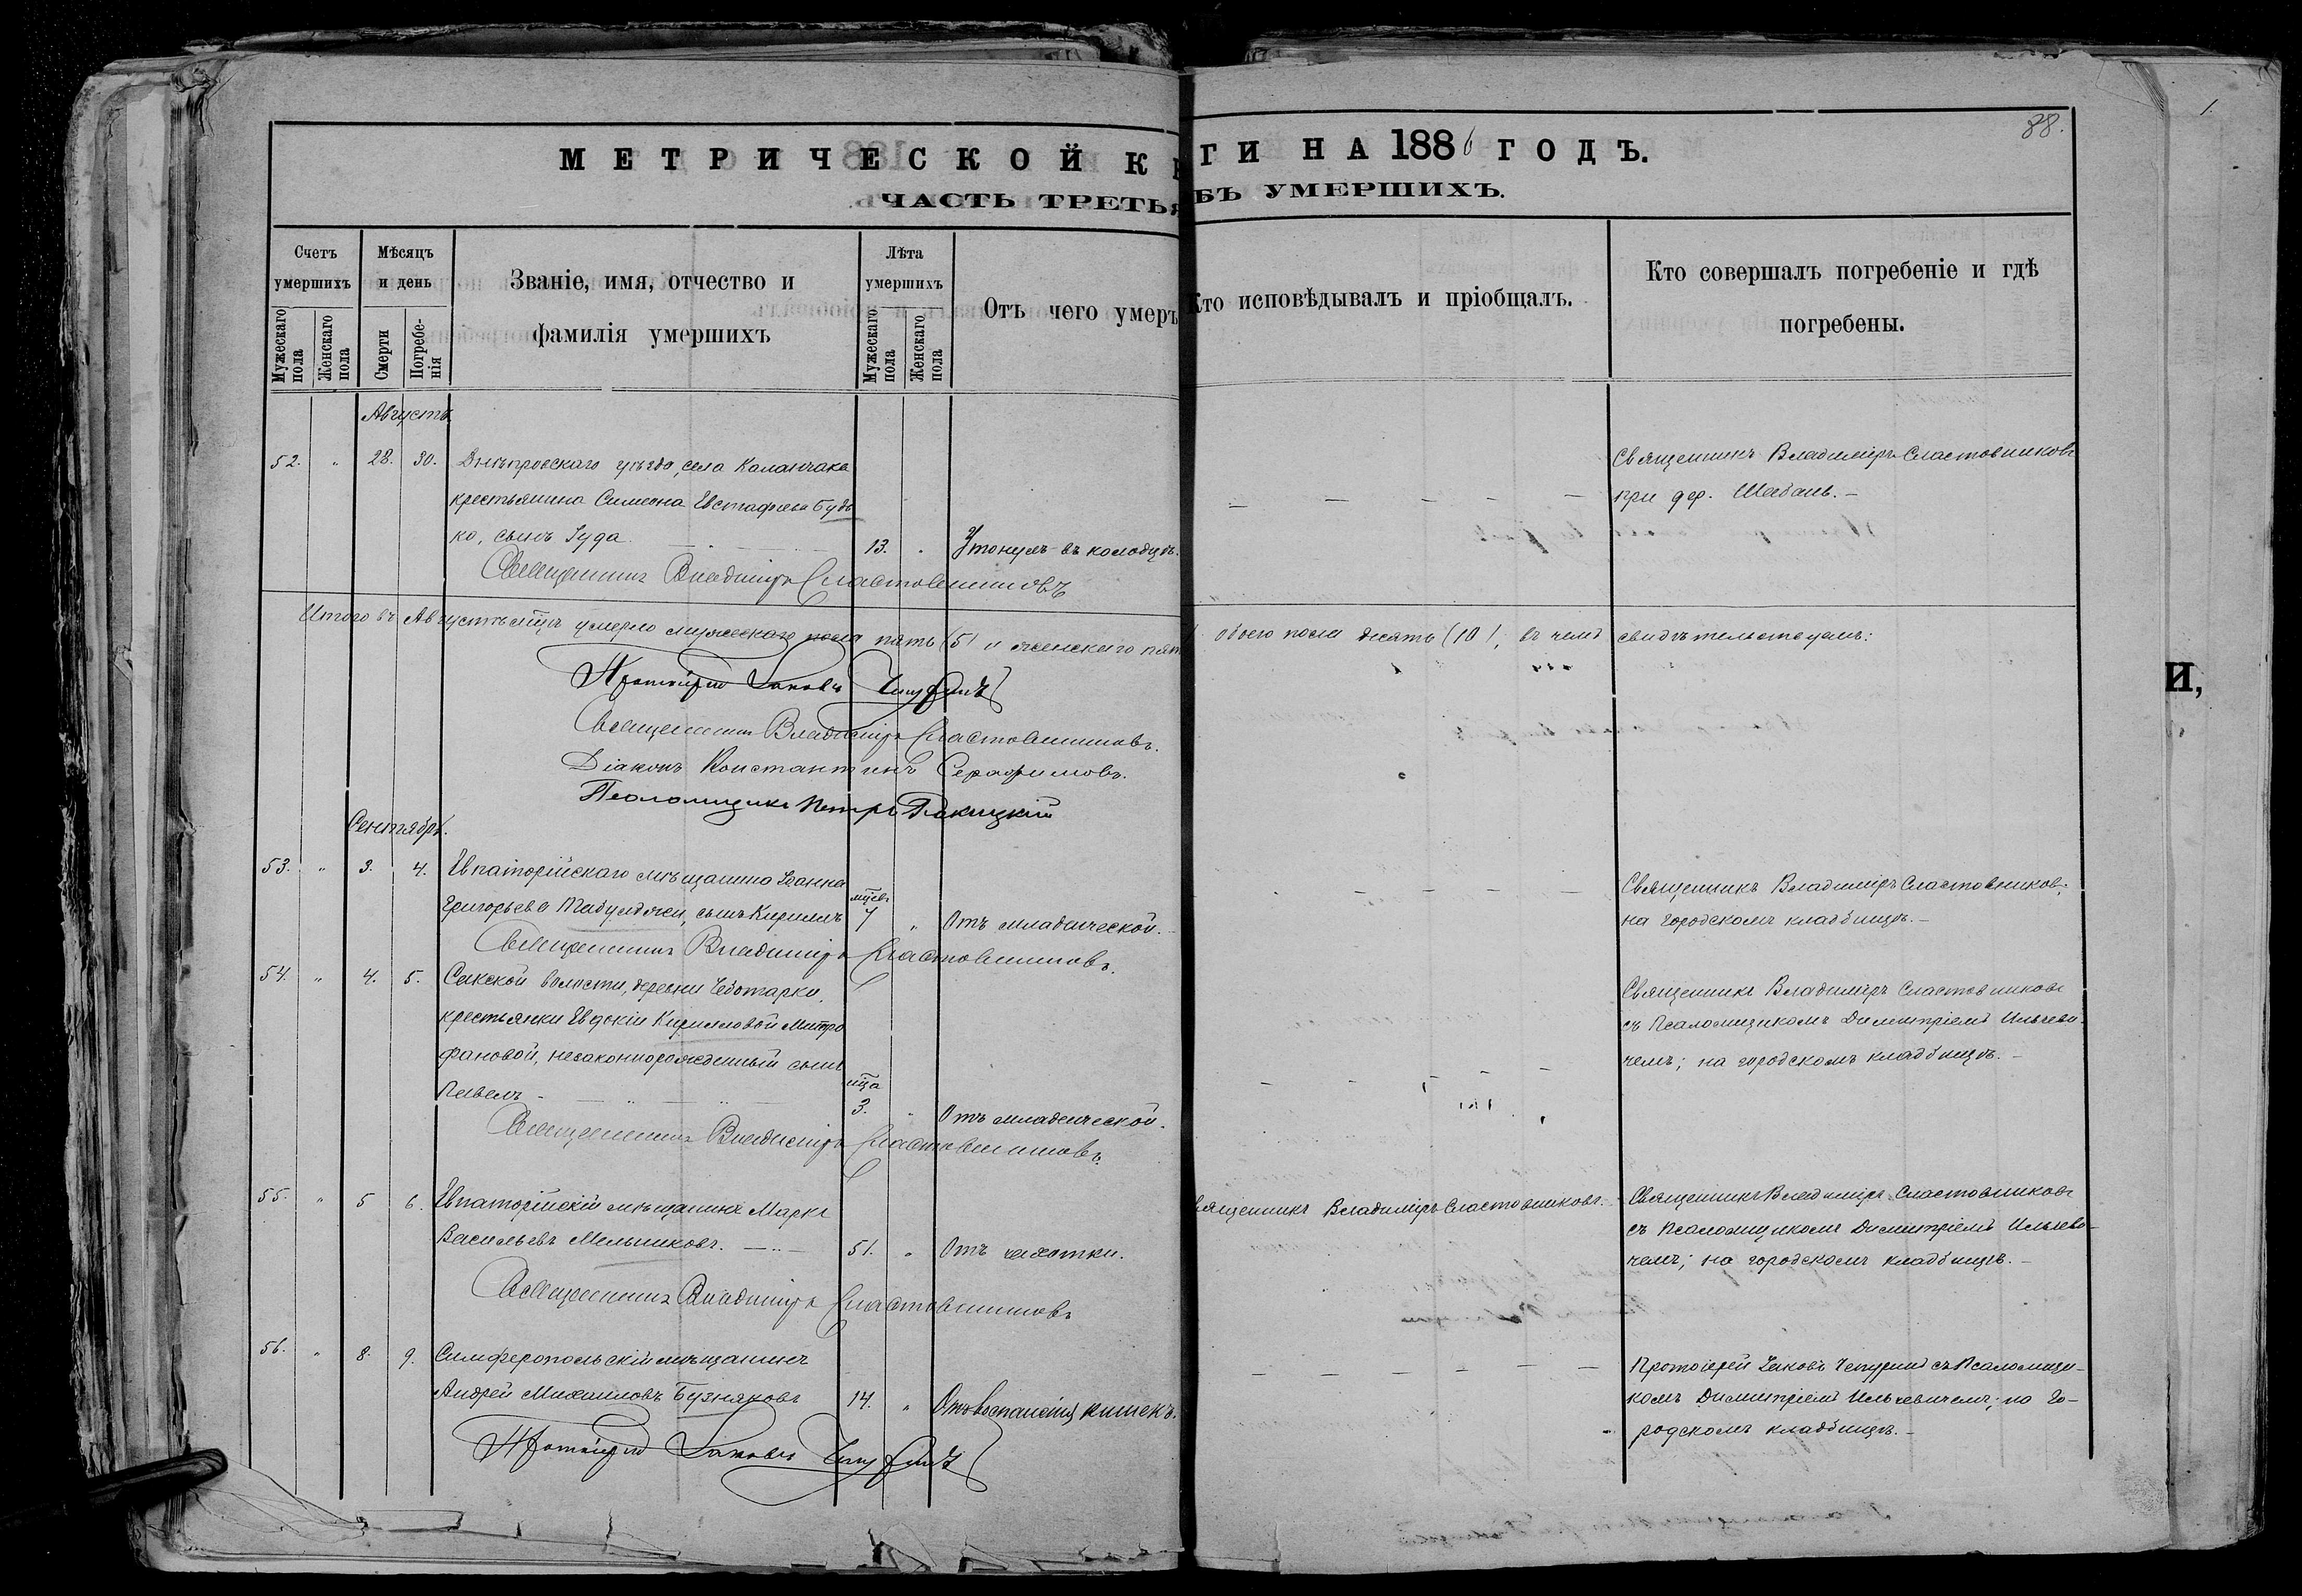 88.
1.
МЕТРИЧЕСКОЙ К
ГИ НА 1886 ГОДЪ.
ЧАСТЬ ТРЕТЬЯ
БЪ УМЕРШИХЪ.
Счетъ умершихъ
Мужескаго пола
Женскаго пола
Мѣсяцъ и день
Смерти
Погребе-нія
Званіе, имя, отчество и
фамилія умершихъ
Лѣта умершихъ
Мужескаго пола
Женскаго пола
Отъ чего умеръ
Кто исповѣдывалъ и пріобщалъ.
Кто совершалъ погребеніе и гдѣ
погребены.
Августъ
52. " 28. 30. Днѣпровскаго уѣзда, села Каланчака
крестьянина Симеона Евстафіева Будь
ко, сынъ Іуда 13. " Утонулъ въ колодцѣ.
Священникъ Владиміръ Сластовниковъ
при дер. Шабань.
Священникъ Владиміръ Сластовниковъ
Итого въ Августѣ мцѣ умерло мужескаго пола пять (5) и женскаго пят
обоего пола десять (10), въ чемъ свидѣтельствуемъ:
Протоіерей Іаковъ Чепуринъ
Священникъ Владиміръ Сластовниковъ.
Діаконъ Константинъ Серафимовъ.
Псаломщикъ Петръ Ракицкій
Сентябрь.
53. " 3. 4. Евпаторійскаго мѣщанина Іоанна
Григорьева Табулджи, сынъ Кириллъ мцевъ 7 " Отъ младенческой.
Священникъ Владиміръ Сластовниковъ;
на городскомъ кладбищѣ.
Священникъ Владиміръ Сластовниковъ.
54. " 4. 5. Сакской волости, деревни Чеботарки,
крестьянки Евдокіи Кирилловой Митро
фановой, незаконнорожденный сынъ
Павелъ мца 3. " Отъ младенческой.
Священникъ Владиміръ Сластовниковъ
съ Псаломщикомъ Димитріемъ Ильчеви-
чемъ; на городскомъ кладбищѣ.
Священникъ Владиміръ Сластовниковъ.
55. " 5 6. Евпаторійскій мѣщанинъ Маркъ
Васильевъ Мельниковъ. 51. " Отъ чахотки.
вященникъ Владиміръ Сластовниковъ.
Священникъ Владиміръ Сластовниковъ
съ Псаломщикомъ Димитріемъ Ильчеви-
чемъ; на городскомъ кладбищѣ.
Священникъ Владиміръ Сластовниковъ
56. " 8. 9. Симферопольскій мѣщанинъ
Андрей Михаиловъ Бузняковъ 14. " Отъ воспаленія кишекъ.
Протоіерей Іаковъ Чепуринъ съ Псаломщи-
комъ Димитріемъ Ильчевичемъ; на го-
родскомъ кладбищѣ.
Протоіерей Іаковъ Чепуринъ
И,